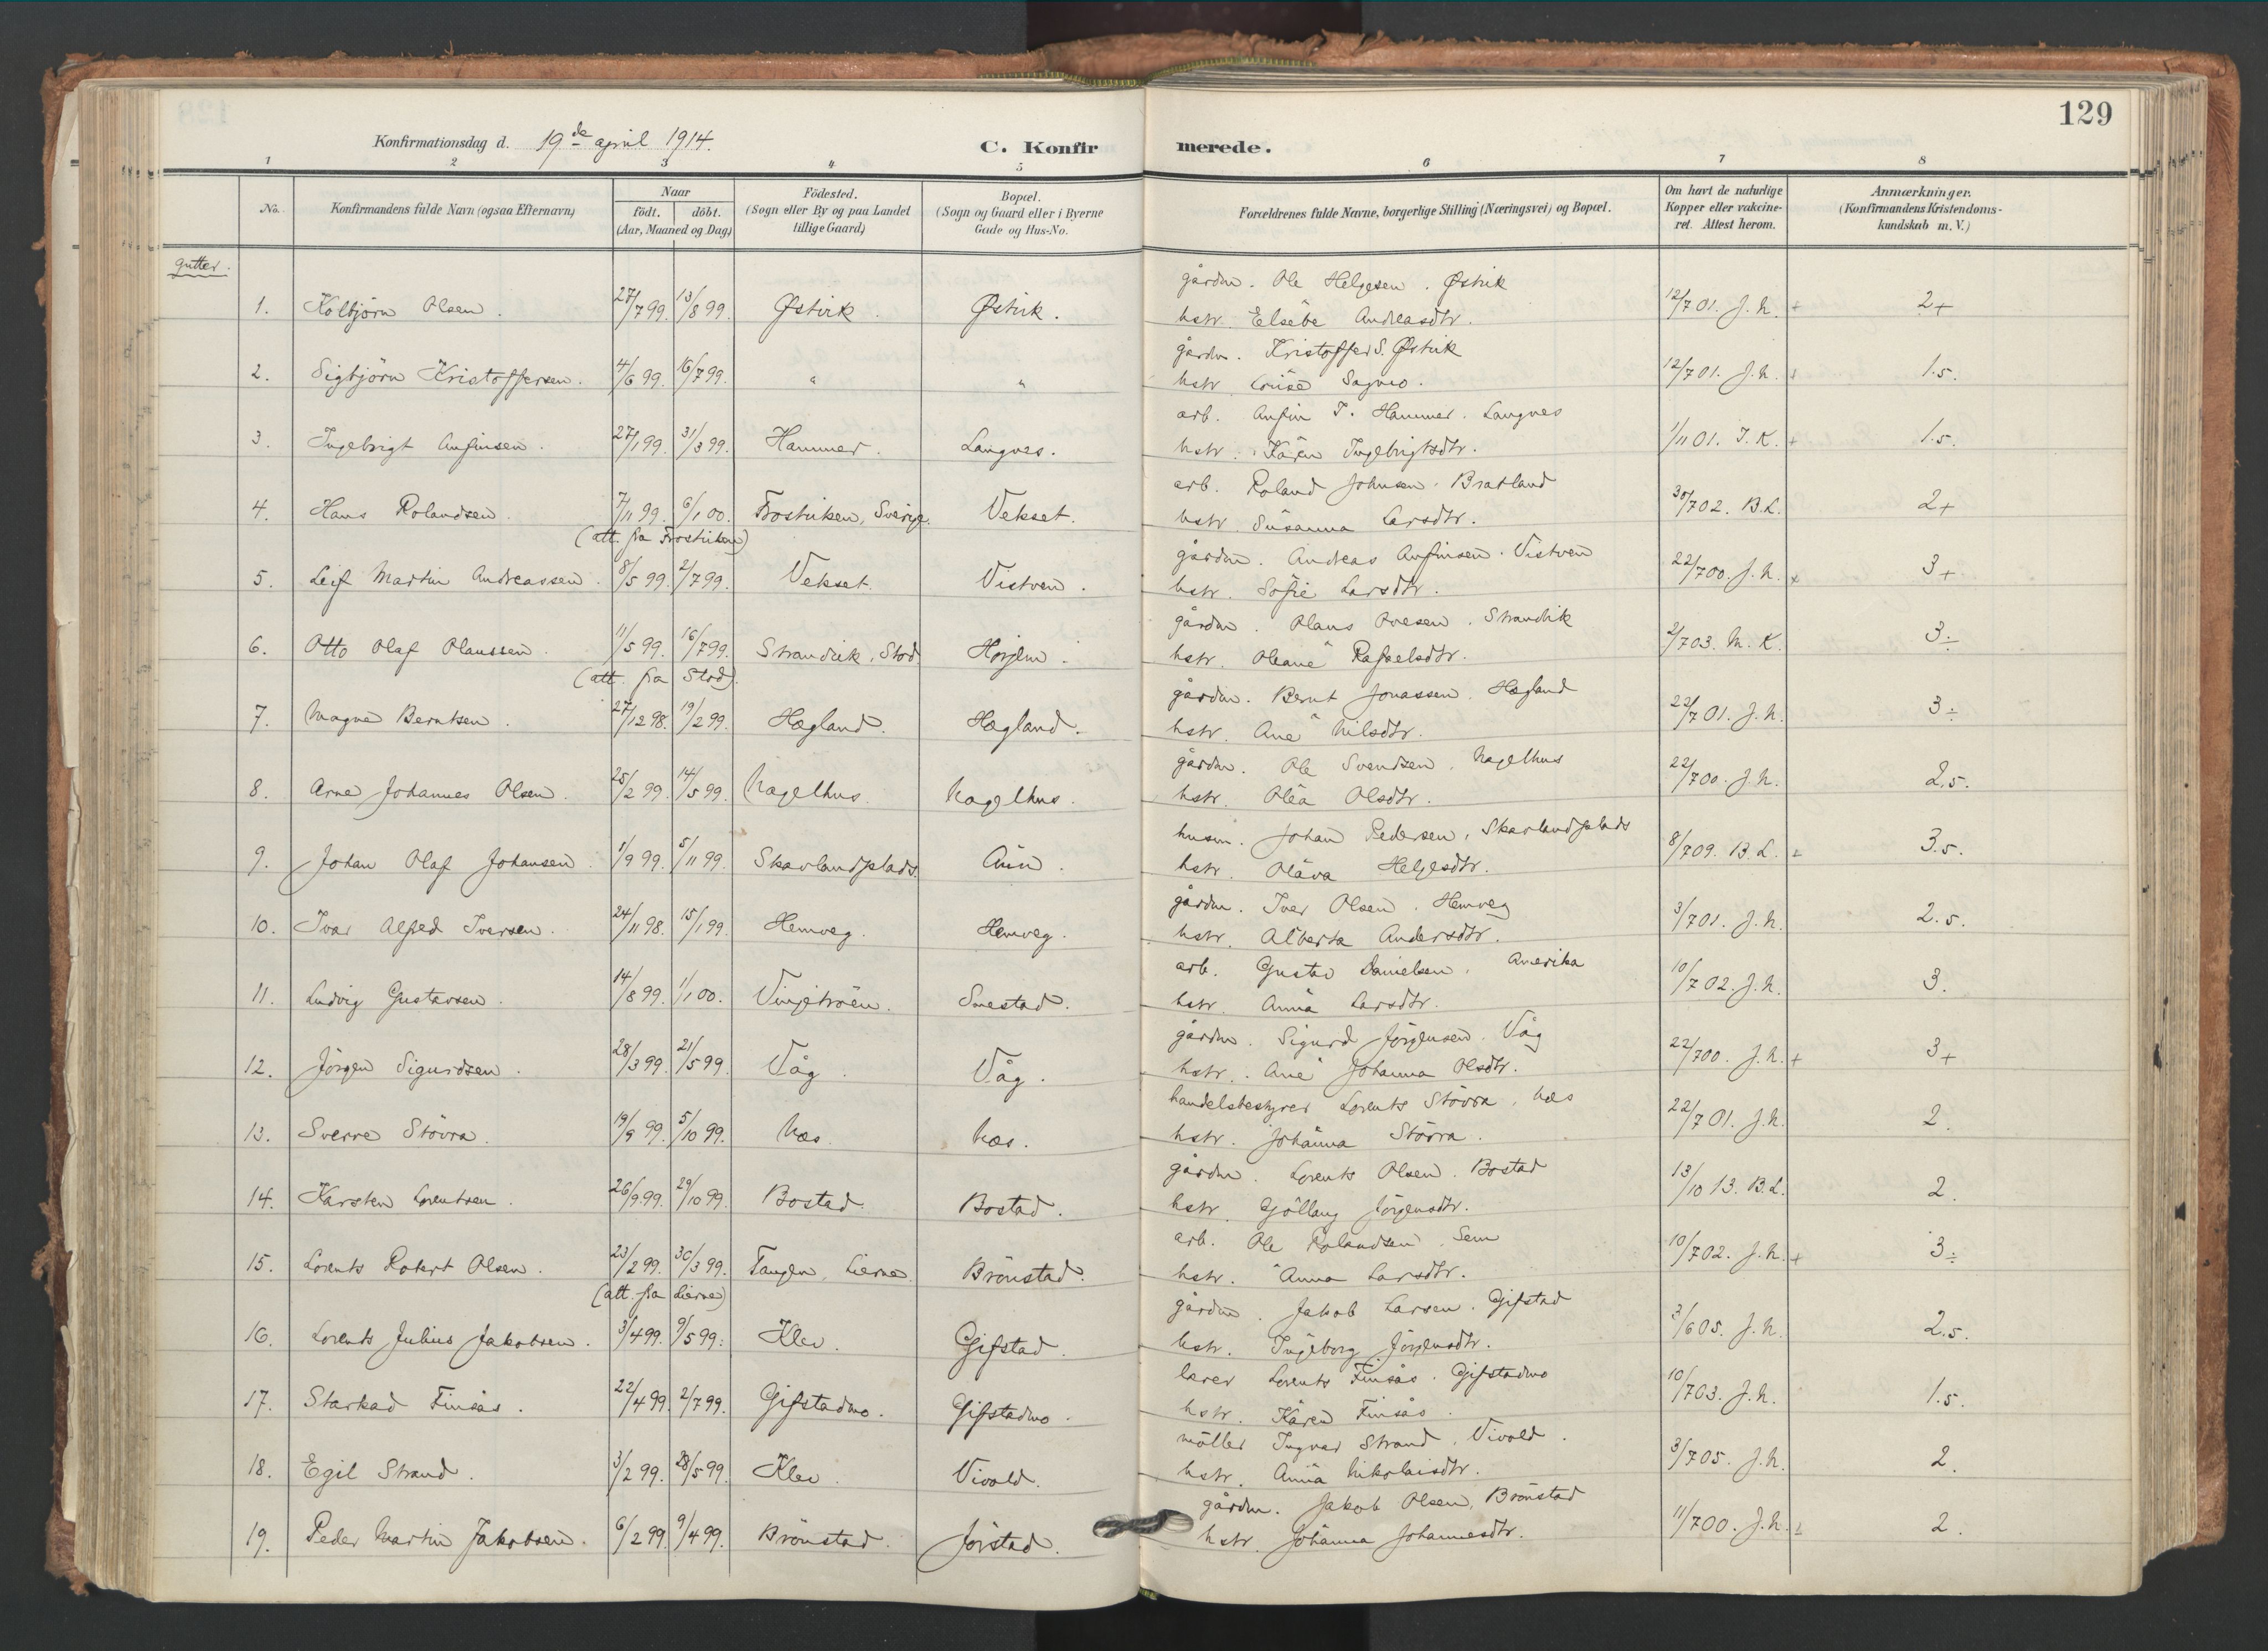 129
Konfirmationsdag d. 19de april 1914. C. Konfirmerede.
1 2 3 4 5 6 7 8
No. Konfirmandens fulde Navn (ogsaa Efternavn) Naar født. døbt. (Aar, Maaned og Dag) Födested. (Sogn eller By og paa Landet tillige Gaard) Bopæl. (Sogn og Gaard eller i Byerne Gade og Hus-No. Forældrenes fulde Navne, borgerlige Stilling (Næringsvei) og Bopæl. Om havt de naturlige Kopper eller vakcineret. Attest herom. Anmærkninger. (Konfirmandens Kristendomskundskab m. V.)
gutter.
gårdm. Ole Helgesen. Østvik
1. Kolbjörn Olsen. 27/7 99. 13/8 99. Østvik. Østvik. hstr. Elsebe Andreasdtr. 12/7 01. J. N. + 2+
gårdm. Kristoffer S. Østvik
2. Sigbjörn Kristoffersen. 4/6 99. 16/7 99. " " hstr. Louise 12/7 01. J. N. + 1.5.
arb. Anfin J. Hammer. Langnes
3. Ingebrigt Anfinsen. 27/1 99. 31/3 99. Hammer. Langnes. hstr. Karen Ingebrigtsdtr. 1/11 01. J. K. + 1.5.
arb. Roland Johnsen. Bratland
4. Hans Rolandsen. 7/11 99. 6/1 00. Frostviken, Sverige. Vekset. hstr. Susanna Larsdtr. 30/7 02. B.L. 2+
(att. fra Frostviken)
gårdm. Andreas Anfinsen. Vistven
5. Leif Martin Andreassen. 8/5 99. 2/7 99. Vekset. Vistven. hstr. Sofie Larsdtr. 22/7 00. J. N. + 3+
gårdm. Olaus Ovesen. Strandvik
6. Otto Olaf Olaussen. 11/5 99. 16/7 99. Strandvik, Stod Hørjem. hstr. Oleane Rafaelsdtr. 2/7 03. M. K. 3÷
(att. fra Stod).
gårdm. Bernt Jonassen. Hægland
7. Magne Berntsen. 27/12 98. 19/2 99. Hægland. Hægland. hstr. Ane Nilsdtr. 22/7 01. J. N. 3÷
gårdm. Ole Svendsen. Nagelhus
8. Arne Johannes Olsen. 25/2 99. 14/5 99. Nagelhus. Nagelhus. hstr. Olea Olsdtr. 22/7 00. J. N. 2.5.
husm. Johan Pedersen, Skarlandplads
9. Johan Olaf Johansen. 1/9 99. 5/11 99. Skavlandplads. Aun. hstr. Olava Helgesdtr. 8/7 09. B. L. + 3.5.
gårdm. Iver Olsen. Hemveg
10. Ivar Alfred Iversen. 24/11 98. 15/1 99. Hemveg. Hemveg. hstr. Alberta Andersdtr. 3/7 01. J. N. 2.5.
arb. Gustav Danielsen, Amerika
11. Ludvig Gustavsen. 14/8 99. 1/1 00. Vinjetröen. Smestad. hstr. Anna Larsdtr. 10/7 02. J. N. 3.
gårdm. Sigurd Jörgensen. Våg
12. Jörgen Sigurdsen. 28/3 99. 21/5 99. Våg. Våg. hstr. Ane Johanna Olsdtr. 22/7 00. J. N. + 3+
handelsbestyrer Lorents Stövra, Næs
13. Sverre Stövra. 19/9 99. 5/10 99. Næs. Næs. hstr. Johanna Stövra. 22/7 01. J. N. 2.
gårdm. Lorents Olsen. Bostad
14. Karsten Lorentsen. 26/9 99. 29/10 99. Bostad. Bostad. hstr. Gjöllaug Jörgensdtr. 13/10 13. B. L. 2.
arb. Ole Rolandsen. Sem
15. Lorents Robert Olsen. 23/2 99. 30/3 99. Tangen, Lierne. Brönstad. hstr. Anna Larsdtr. 10/7 02. J. N. + 3÷
(att. fra Lierne)
gårdm. Jakob Larsen. Gifstad
16. Lorents Julius Jakobsen. 3/4 99. 9/5 99. Klev. Gifstad. hstr. Ingeborg Jörgensdtr. 3/6 05. J. N. 2.5.
lærer Lorents Finsås. Gifstadmo
17. Starkad Finsås. 22/4 99. 2/7 99. Gifstadmo. Gifstadmo. hstr. Karen Finsås. 10/7 03. J. N. 1.5.
möller Ingvar Strand, Vivold.
18. Egil Strand. 3/2 99. 28/5 99. Klev. Vivold. hstr. Anna Nikolaisdtr. 3/7 05. J. N. 2.
gårdm. Jakob Olsen, Brönstad
19. Peder Martin Jakobsen. 6/2 99. 9/4 99. Brönstad. Jörstad. hstr. Johanna Johannesdtr. 11/7 00. J. N. + 2.